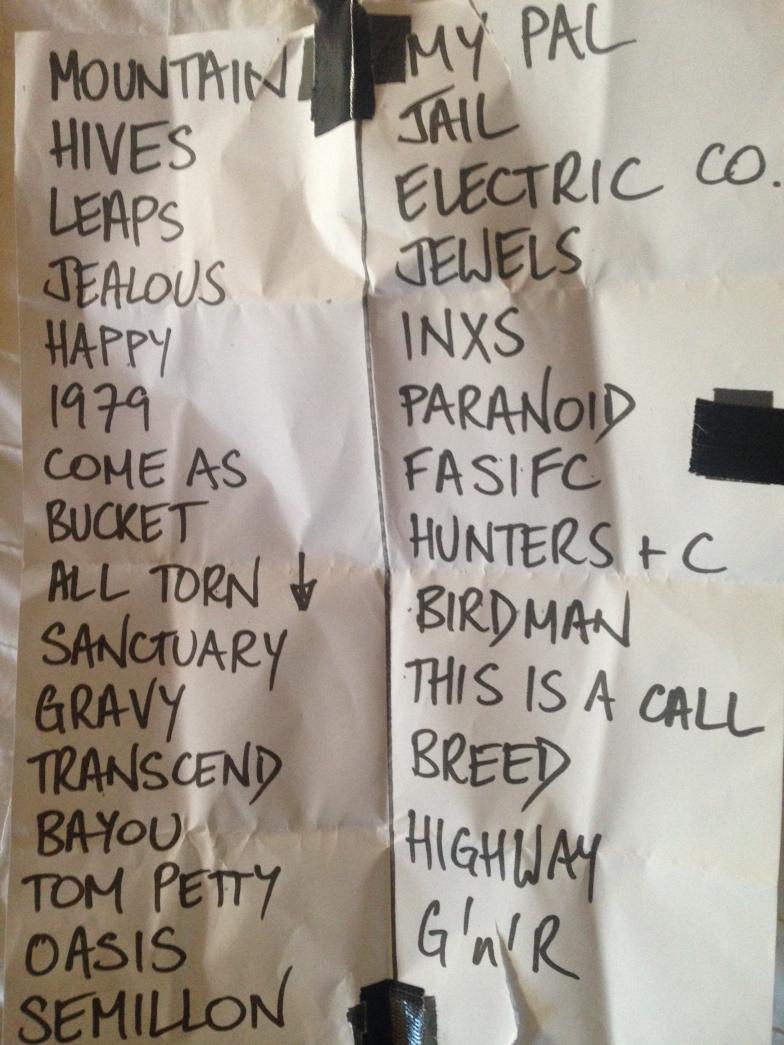 MOUNTAIN
HIVES
LEAPS
JEALOUS
HAPPY
1979
COME AS
BUCKET
ALL TORN ↓
SANCTUARY
GRAVY
TRANSCEND
BAYOU
TOM PETTY
OASIS
SEMILLON
MY PAL
JAIL
ELECTRIC CO.
JEWELS
INXS
PARANOID
FASIFC
HUNTERS + C
BIRDMAN
THIS IS A CALL
BREED
HIGHWAY
G'n'R